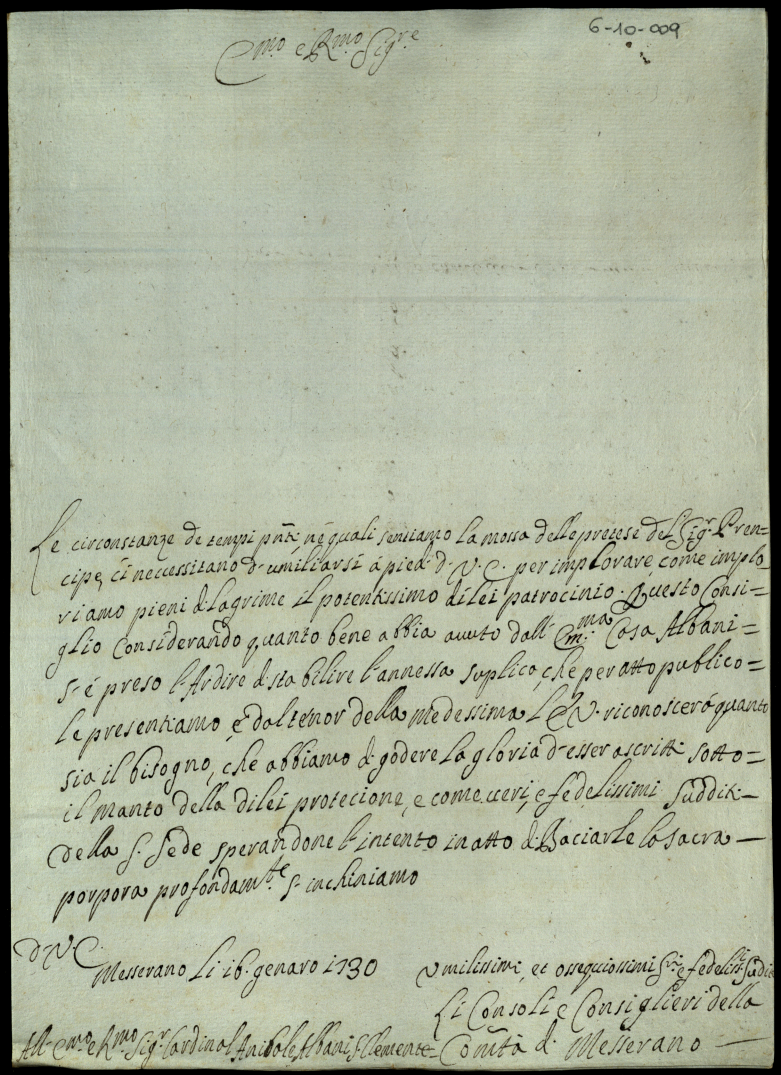 6-10-009
Emo e Rmo Sigre
Le circonstanze de tempi pnti né quali sentiamo la mossa delle pretese del Sigr Pren=
cipe, ci necessitano d'umiliarsi á piedi d. V. E. per implorare, come implo=
riamo pieni di lagrime il potentissimo di lei patrocinio. Questo Consi=
glio considerando quanto bene abbia avuto dall' Emma Casa Albani=
s'é preso l'Ardire di stabilire l'annessa suplica, che per atto publico=
le presentiamo, é dal tenor della medessima l'E. V. riconoscerá quanto
sia il bisogno, che abbiamo di godere la gloria d'esser ascritti sotto=
il manto della di lei protecione, e come veri, e fedelissimi sudditi-
della S. Sede sperandone l'intento in atto di Baciarle la sacra —
porpora profondamte s'inchiniamo
D. V. E.
Messerano Li 16. genaro 1730
Umilissimi, et ossequiossimi Sri e fedelissi Sudti
Li Consoli e Consiglieri della
Comtà di Messerano —
All' Emo e Rmo Sigr Cardinal Anibale Albani S. Clemente=